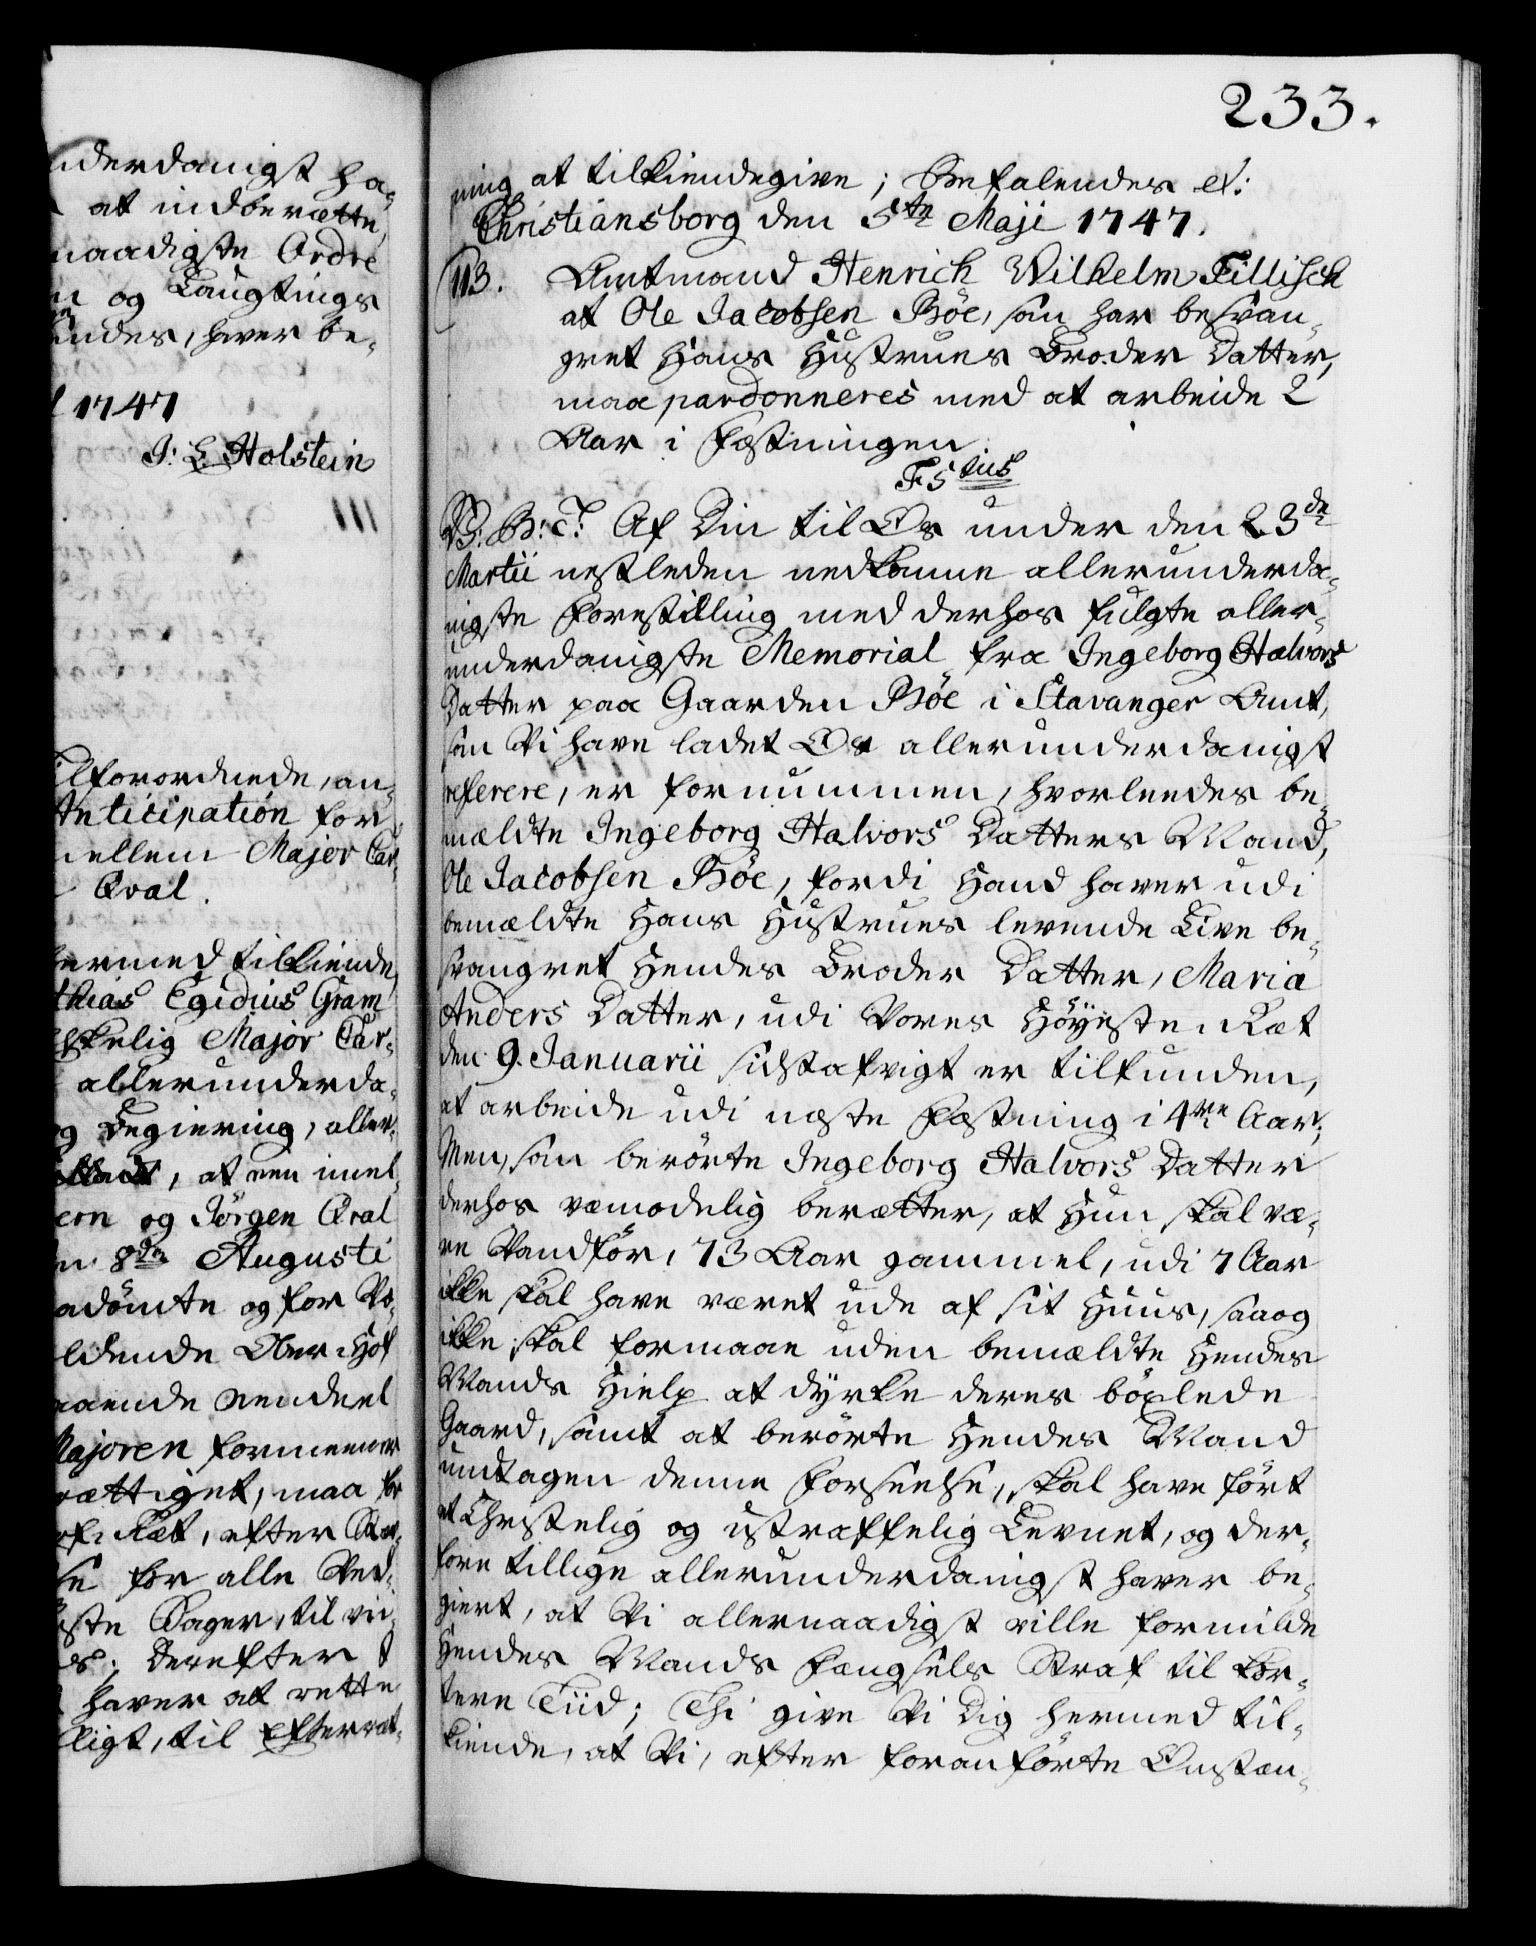 nderdanigst ha-
at indberætte,
naadigste Ordre
og Laugtings
indes, hver be-
1747
J: L. Holstein
111
ilforordnede, an-
Anticipation for
mellem Major Car-
Qval.
hermed tilkiende,
thias Egidius Gram
skelig Major Car-
allerunderda-
og Begiering, aller-
, at een imel-
ern og Jörgen Qval
8de Augusti
adömte og for Vo-
ldende Ober-Hof
aaende eendeel
Majoren formeener
rættiget, maa for
Ræt, efter
for alle Ved-
ste Sager, til vii-
Derefter
haver at rette
ligt, til Efterræt-
233.
ning at tilkiendegive; Befalendes etc:
Christiansborg den 5te Maji 1747.
113. Amtmand Henrich Wilhelm Tillisch
at Ole Jacobsen Böe, som har besvan-
gret Hans Hustrues Broder Datter,
maa pardonneres med at arbeide 2
Aar i Fæstningen.
F 5tus
V. G: T: Af Din til Os under den 23de
Martii nestleden nedkomne allerunderda-
nigste Forestilling med derhos fulgte aller-
underdanigste Memorial fra Ingeborg Halvors
Datter paa Gaarden Böe i Stavanger Amt,
som Vi have ladet Os allerunderdanigst
referere, er fornummen, hvorleedes be-
mældte Ingeborg Halvors Datters Mand,
Ole Jacobsen Böe, fordi Hand haver udi
bemældte Hans Hustrues levende Live be-
svangret Hendes Broder Datter, Maria
Anders Datter, udi Vores Höyeste-Ræt
den 9. Januarii sidstafvigt er tilfunden,
at arbeide udi næste Fæstning i 4re Aar;
Men, som berörte Ingeborg Halvors Datter
derhos væmodelig berætter, at Hun skal væ-
re Vandför, 73 Aar gammel, udi 7 Aar
ikke skal have været ude af sit Huus, saa og
ikke skal formaae uden bemældte Hendes
Mands Hielp at dÿrke deres böxlede
Gaard, samt at berörte Hendes Mand
undtagen denne Forseelse, skal have fört
et Christelig og ustraffelig Levnet, og der-
fore tillige allerunderdanigst haver be-
giert, at Vi allernaadigst ville formilde
Hendes Mands Fængsels Straf til kor-
tere Tiid; Thi give Vi Dig hermed til-
kiende, at Vi, efter foranförte Omstæn-